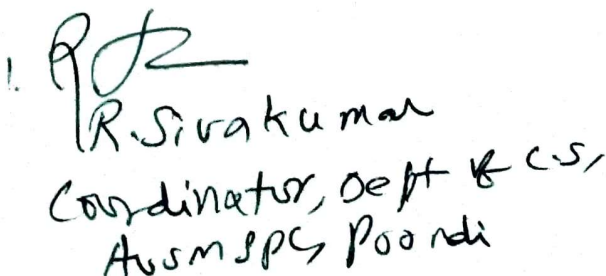 1.
R. Sivakumar
Coordinator, Dept of C.S,
AVVMSPC, Poondi